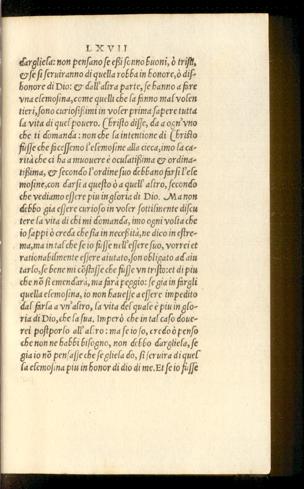 LXVII
dargliela: non pensano se eßi sonno buoni, ò tristi,
& se si seruiranno di quella robba in honore, ò dis-
honore di Dio: & dall'altra parte, se hanno a fare
vna elemosina, come quelli che la fanno mal volen
tieri, sono curiosißimi in voler prima sapere tutta
la vita di quel pouero. Christo disse, da a ogn'vno
che ti domanda: non che la intentione di Christo
fusse che facessemo l'elemosine alla cieca, imo la ca-
rità che ci ha a muouere è oculatißima & ordina-
tißima, & secondo l'ordine suo debbano farsi l'ele
mosine, con darsi a questo ò a quell'altro, secondo
che vediamo essere piu in gloria di Dio. Ma non
debbo gia essere curioso in voler sottilmente discu
tere la vita di chi mi domanda, imo ogni volta che
io sappi ò creda che sia in necessità, ne dico in estre-
ma, ma in tal che se io fusse nell'essere suo, vorrei et
rationabilmente essere aiutato, son obligato ad aiu
tarlo, se bene mi cõstisse che fusse vn tristo: et di piu
che nõ si emendarà, ma farà peggio: se gia in fargli
quella elemosina, io non hauesse a essere impedito
dal farla a vn'altro, la vita del quale è piu in glo-
ria di Dio, che la sua. Imperò che in tal caso doue-
rei postporlo all'altro: ma se io so, credo ò penso
che non ne habbi bisogno, non debbo dargliela, se
gia io nõ pensasse che se gliela do, si seruira di quel
la elemosina piu in honor di dio di me. Et se io fusse